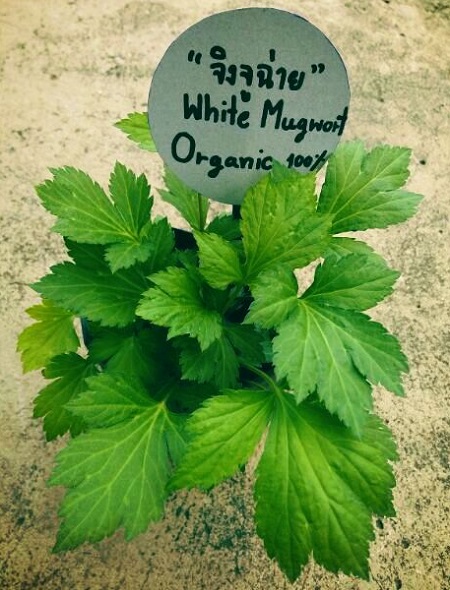 "จิงจูฉ่าย"
White Mugwort
Organic 100%